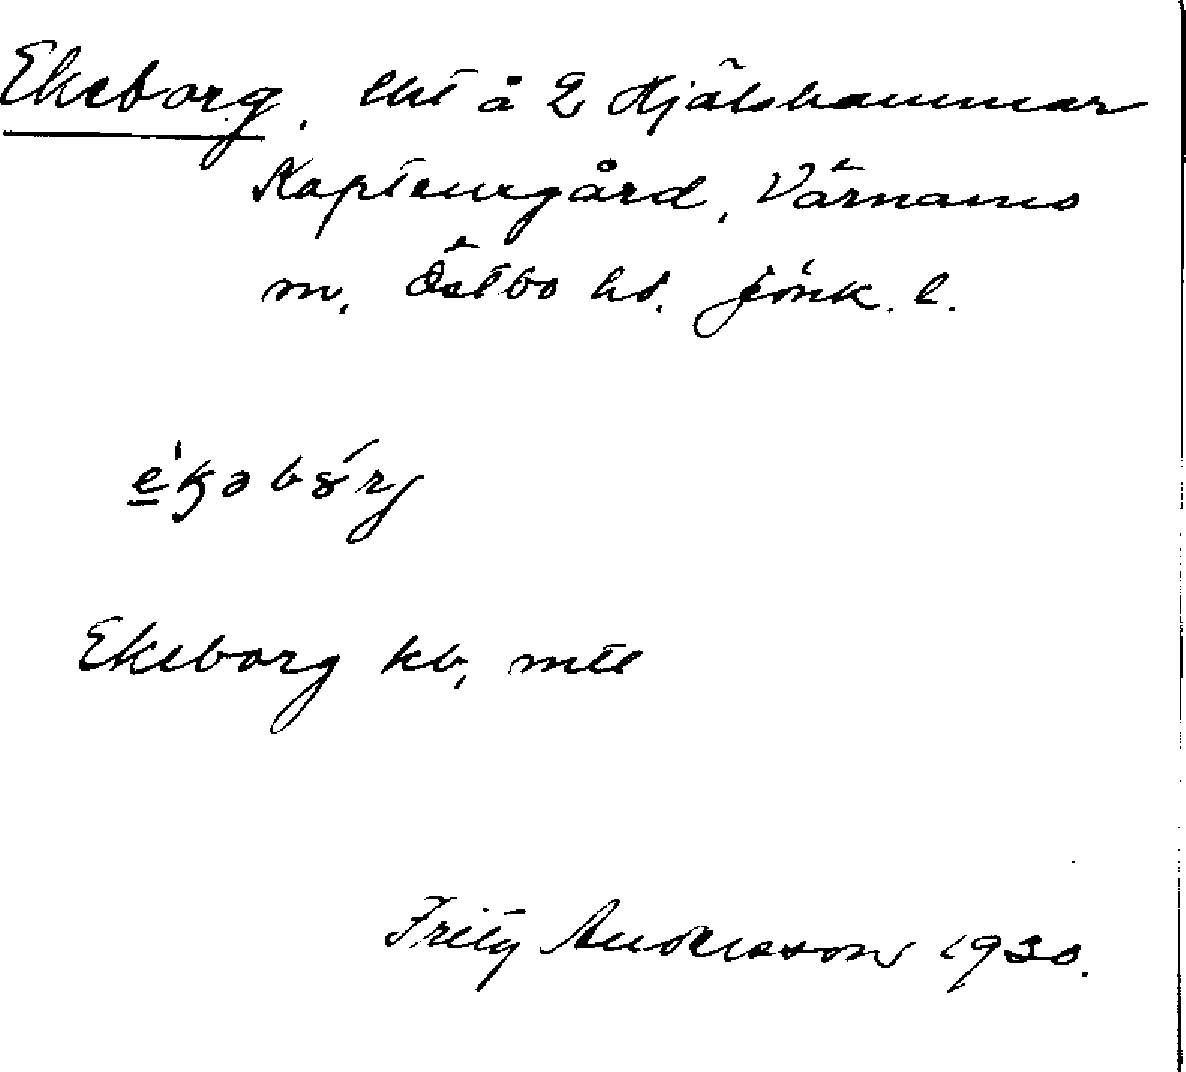 Ekeborg, lht å 2 Hjälshammar
Kaptensgård, Värnamo
m. Östbo hd. Jönk. l.
Ekeborg kb, mtl
Fritz Andersson 1930.